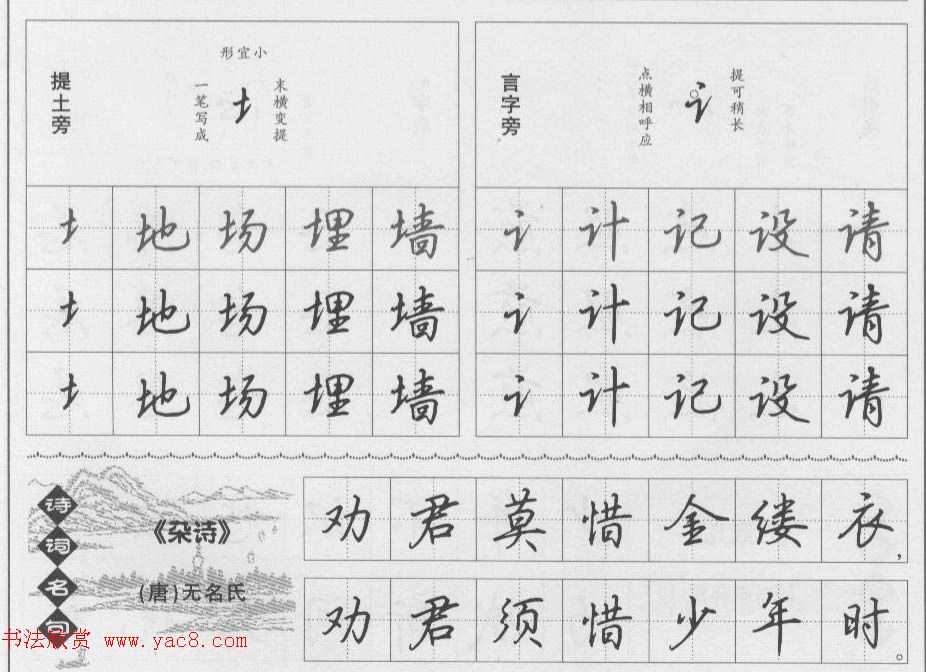 提土旁
形宜小
一笔写成
末横变提
土地场埋墙
土地场埋墙
土地场埋墙
言字旁
点横相呼应
提可稍长
讠
讠计记设请
讠计记设请
讠计记设请
诗词名句
《杂诗》
(唐)无名氏
劝君莫惜金缕衣,
劝君须惜少年时。
书法欣赏 www.yac8.com